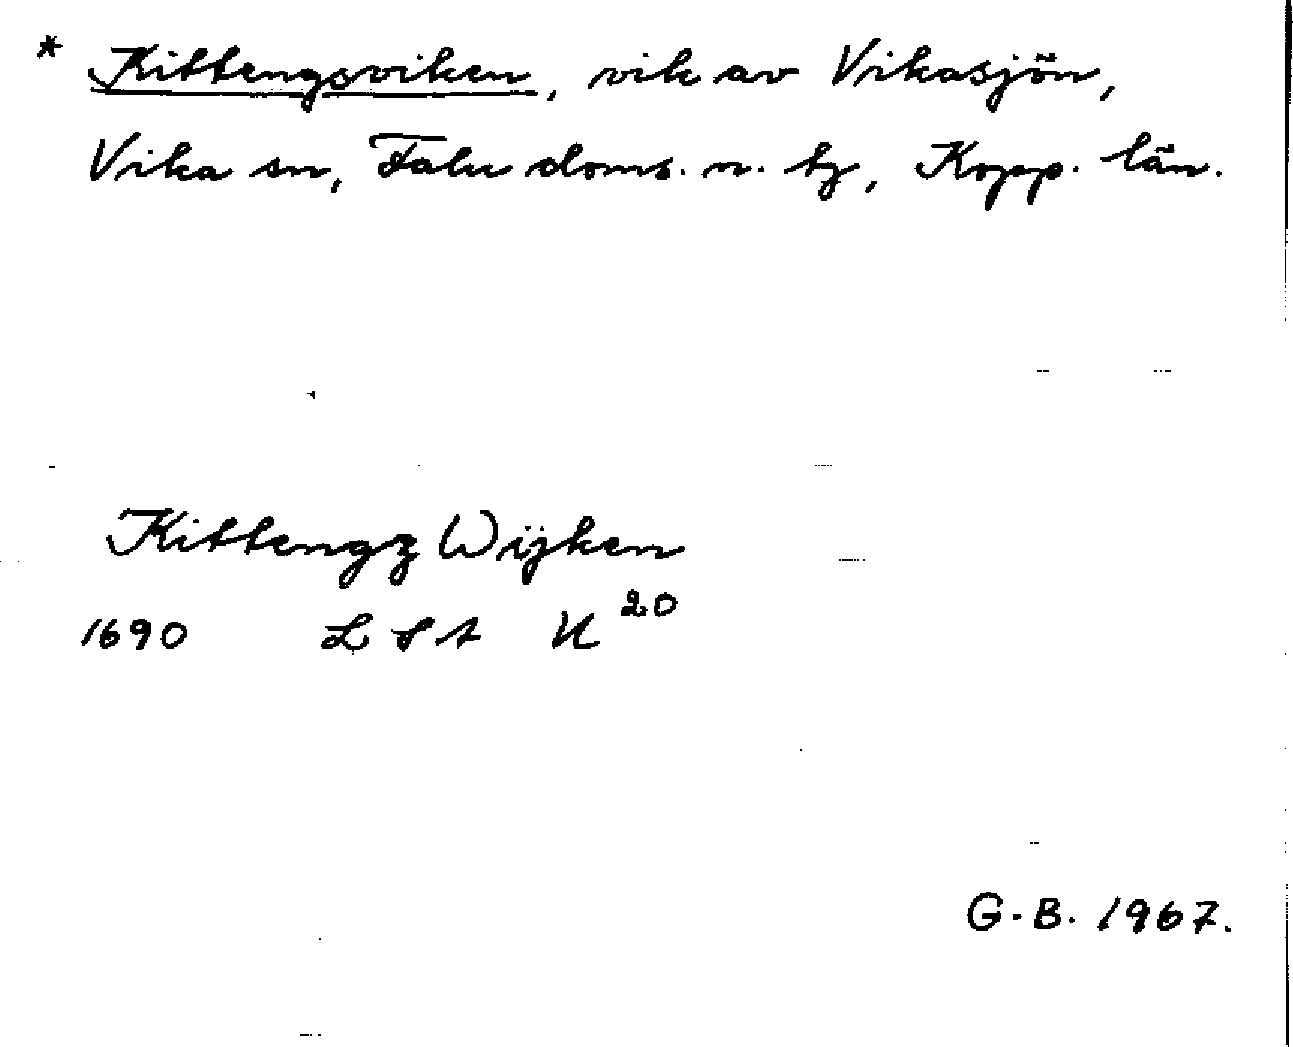 * Kittengsviken, vik av Vikasjön,
Vika sn, Falu doms. n. tg, Kopp. län.
Kittengz Wijken
1690 LSA U²⁰
G.B. 1967.